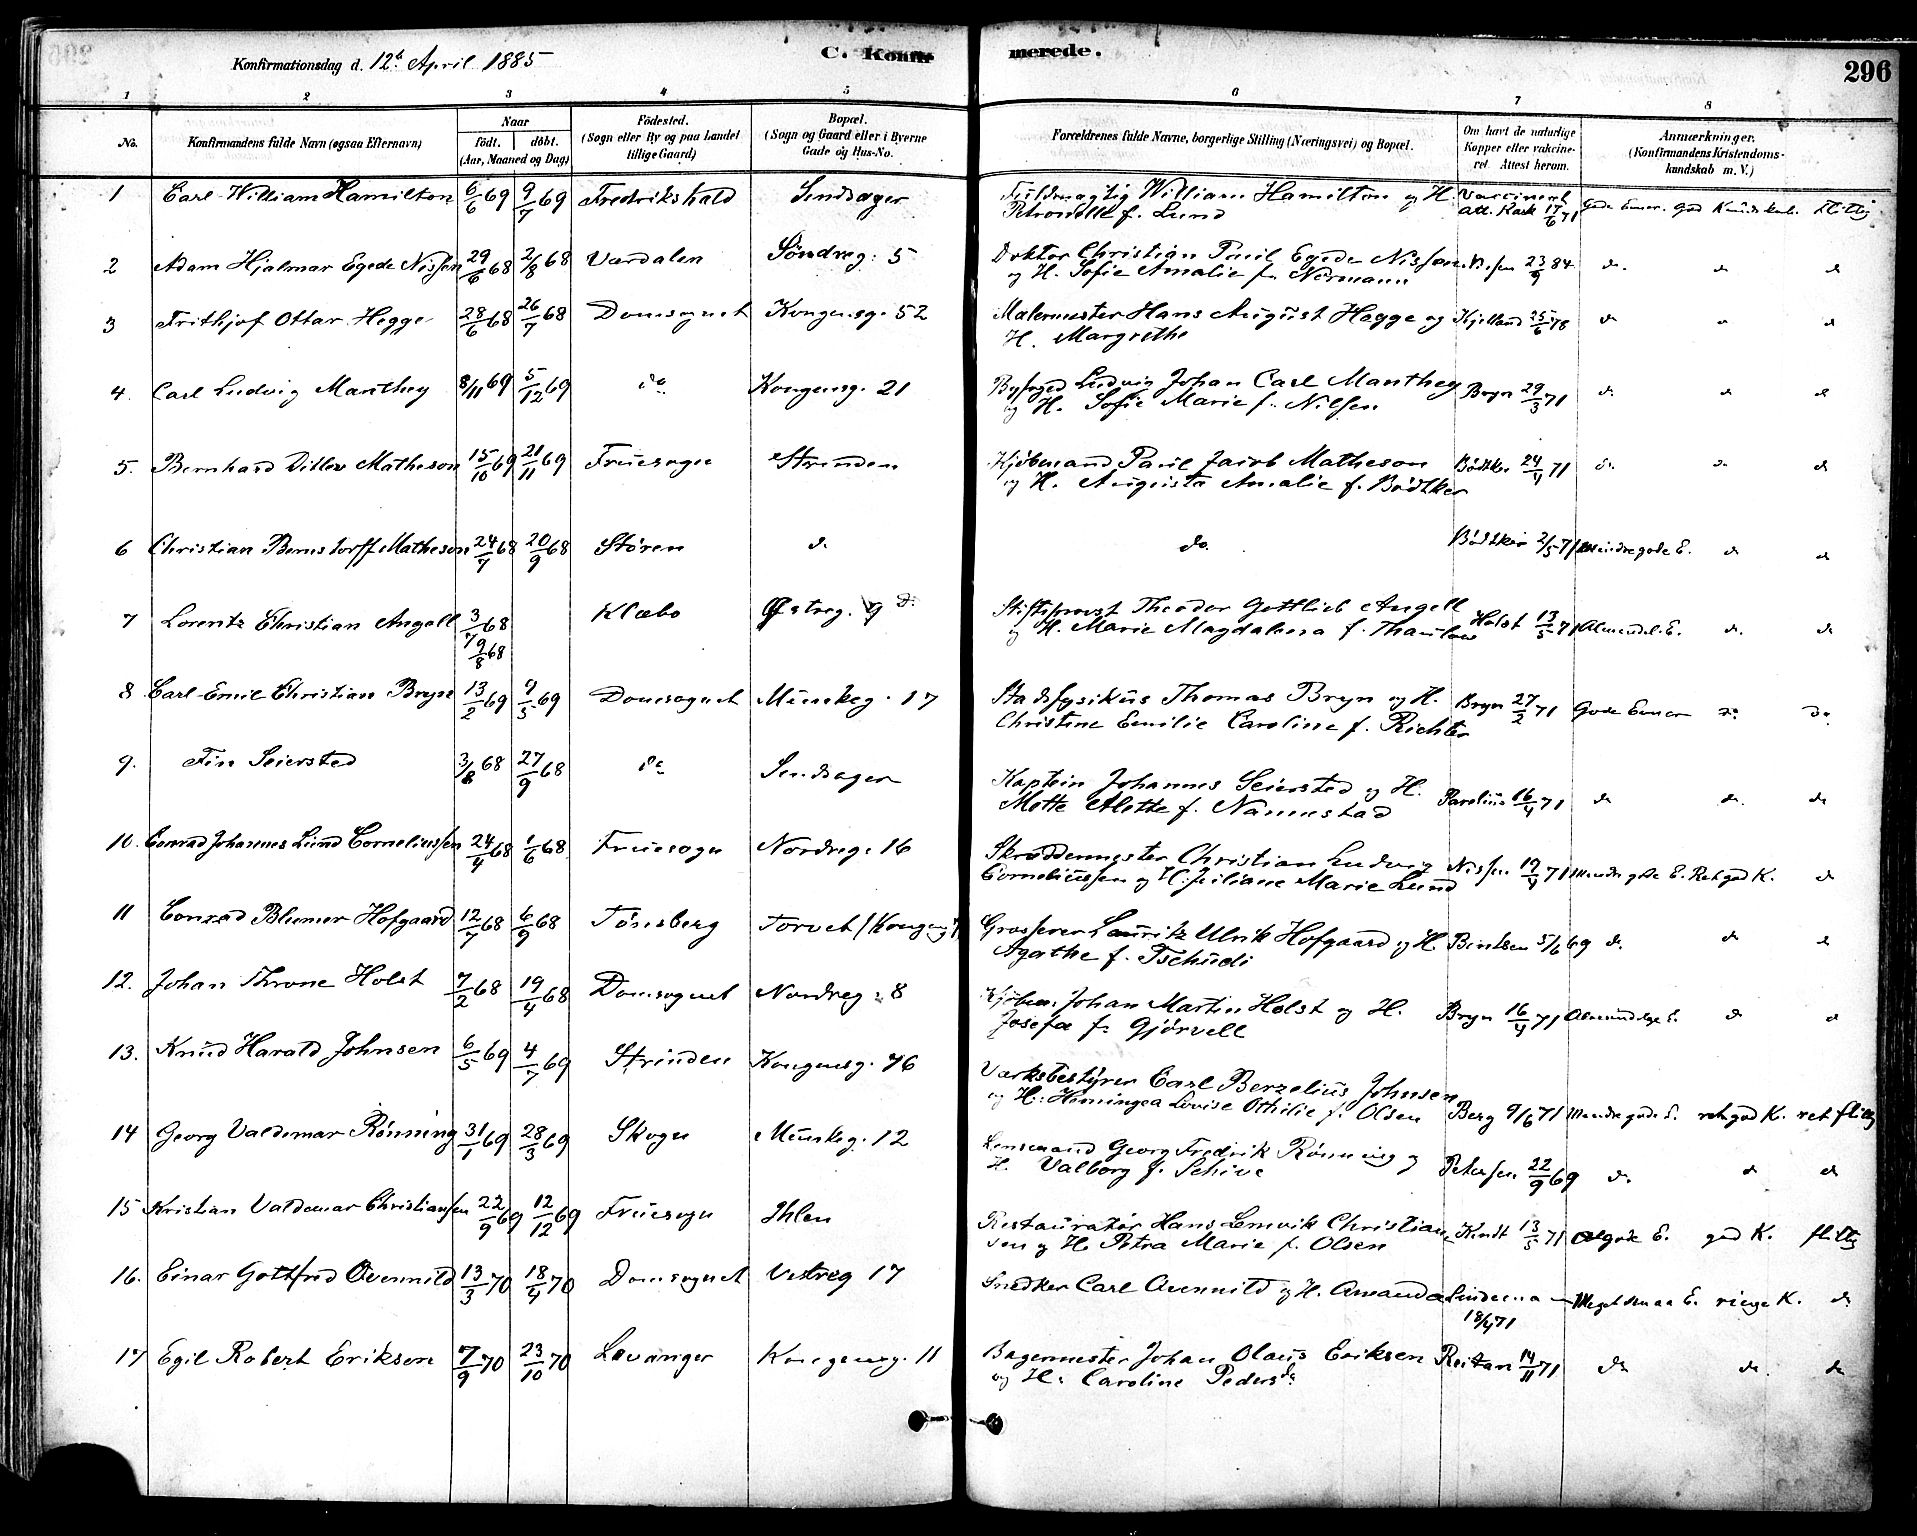 Konfirmationsdag d. 12te April 1885
C. Konfir
merede.
296
1 2 3 4 5 6 7 8
No.
Konfirmandens fulde Navn (ogsaa Efternavn)
Naar
født. døbt.
(Aar, Maaned og Dag)
Födested.
(Sogn eller By og paa Landet
tillige Gaard)
Bopæl.
(Sogn og Gaard eller i Byerne
Gade og Hus-No.
Forældrenes fulde Navne, borgerlige Stilling (Næringsvei) og Bopæl.
Om havt de naturlige
Kopper eller vakcine-
ret. Attest herom.
Anmærkninger.
(Konfirmandens Kristendoms-
kundskab m. V.)
1 Carl William Hamilton 6/6 69 9/7 69 Fredrikshald Fuldmægtig William Hamilton og H. Vaccineret
Petronelle f. Lund att. Kark 17/6 71 Gode Evner. God Kundskab. Flittig
2 Adam Hjalmar Egede Nissen 29/6 68 2/8 68 Værdalen Søndreg. 5 Doktor Christian Paul Egede Nissen 23/9 84 do. do do
og H. Sofie Amalie f. Normann
3 Frithjof Ottar Hegge 28/6 68 26/7 68 Domsognet Kongensg. 52 Malermester Hans August Hegge og Kjelland 25/6 78 do do do
H. Margrethe
4. Carl Ludvig Manthey 8/11 69 5/12 69 do Kongensg. 21 Byfoged Ludvig Johan Carl Manthey Bryn 29/3 71 do do do
og H. Sofie Marie f. Nilsen
5. Bernhard Ditlev Matheson 15/10 69 21/11 69 Fruesogn Strinden Kjøbmand Paul Jacob Matheson Bødtker 24/4 71 do do do
og H. Augusta Amalie f. Bødtker
6 Christian Bernstorff Matheson 24/7 68 20/9 68 Støren do do. Bødtker 2/5 71 Mindre gode E. do do
7 Lorentz Christian Angell 3/7 68 9/8 68 Klæbo Østreg. 9 Stiftsprovst Theodor Gottlieb Angell Holst 13/5 71 Almindel. E. do. do
og H. Marie Magdalena f. Thaulow
8 Carl Emil Christian Bryn 13/2 69 9/5 69 Domsognet Munkeg. 17 Stadsfysikus Thomas Bryn og H. Bryn 27/2 71 Gode Evner do do.
Christine Emilie Caroline f. Richter
9. Fin Seiersted 3/8 68 27/9 68 do Kaptein Johannes Seiersted og H. 16/4 71 do do. do
Mette Alette f. Nannestad
10. Conrad Johannes Lund Corneliussen 24/4 68 1/6 68 Fruesogn Nordreg. 16 Skræddermester Christian Ludvig Nissen 19/4 71 Mindre gode E. Ret god K. do
Corneliussen og H. Juliane Marie Lund
11 Conrad Blumer Hofgaard 12/7 68 6/9 68 Tønsberg Torvet Grosserer Lauritz Ulrik Hofgaard og H. Bentsen 5/6 69 do. do do
Agathe f. Tschudi
12. Johan Throne Holst 7/2 68 19/4 68 Domsognet Nordreg. 8 Kjøbm. Johan Martin Holst og H. Bryn 16/4 71 Almindelige E. do do
Josefa f. Gjørvell
13. Knud Harald Johnsen 6/5 69 4/7 69 Strinden Kongensg. 76 Værksbestyrer Carl Berzelius Johnsen
og H. Hemingea Lovise Othilie f. Olsen Berg 9/6 71 Mindre gode E. ret god K. ret flittig
14 Georg Valdemar Rønning 31/1 69 28/3 69 Skogn Munkeg. 12 Lensmand Georg Fredrik Rønning og Petersen 22/9 69 do. do do
H. Valborg f. Schive
15 Kristian Valdemar Christiansen 22/9 69 12/12 69 Fruesogn Ihlen Restauratør Hans Lemvik Christian Kindt 13/5 71 gode E. god K. flittig
sen og H. Petra Marie f. Olsen
16. Einar Gottfred Avennild 13/3 70 18/4 70 Domsognet Vestreg 17 Snedker Carl Avennild og H. Amanda Lindeman Meget smaa E. ringe K. do
18/4 71
17 Egil Robert Eriksen 7/9 70 23/10 70 Levanger Kongensg. 11 Bagermester Johan Olaus Eriksen Reitan 14/11 71 do do do
og H. Caroline Pedersdr